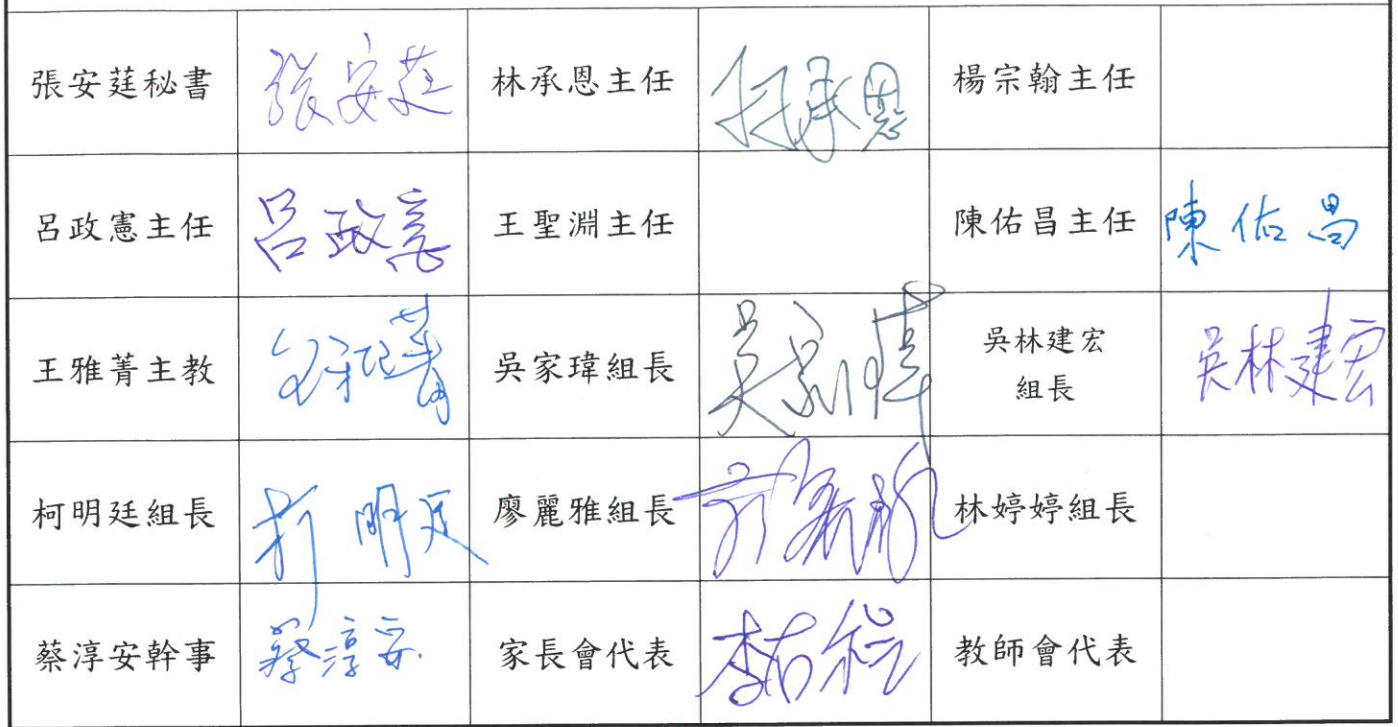 張安莛秘書 張安莛 林承恩主任 林承恩 楊宗翰主任
呂政憲主任 呂政憲 王聖淵主任 陳佑昌主任 陳佑昌
王雅菁主教 吳家瑋組長 吳家瑋 吳林建宏
組長 吳林建宏
柯明廷組長 柯明廷 廖麗雅組長 林婷婷組長
蔡淳安幹事 蔡淳安 家長會代表 教師會代表